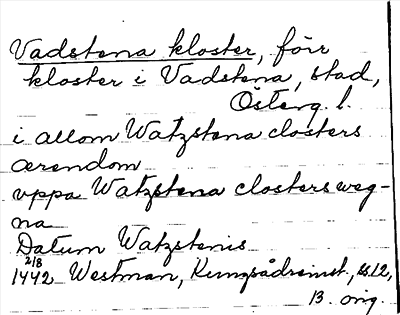 Vadstena kloster, förr
kloster i Vadstena, stad,
Österg. l.
i allom Watzstena closters
ærendom
vppa Watzstena closters weg-
na
Datum Watzstenis
2/8
1442 Westman, Kungsådreinst., s. 12,
B. orig.